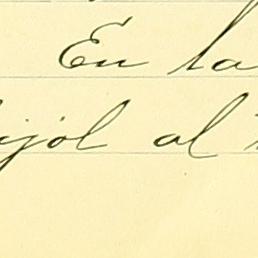 En la
ijol al